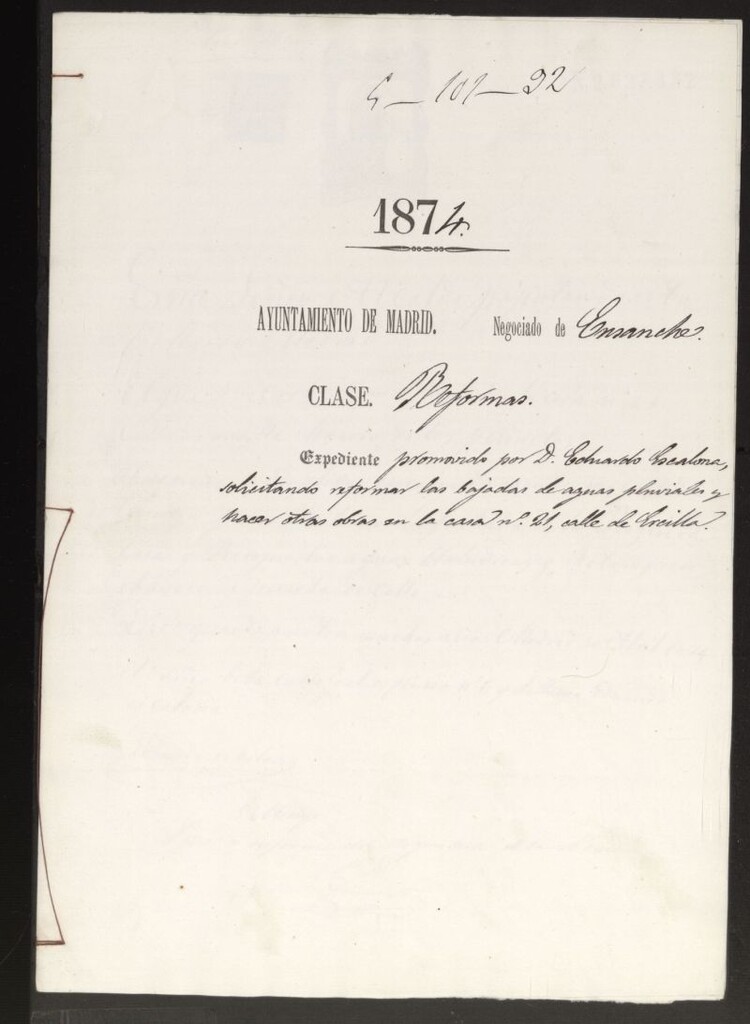 5-101-92
1874.
AYUNTAMIENTO DE MADRID. Negociado de Ensanche.
CLASE. Reformas.
Expediente promovido por D. Eduardo Escalona,
solicitando reformar las bajadas de aguas pluviales y
hacer otras obras en la casa nº. 21, calle de Ercilla.